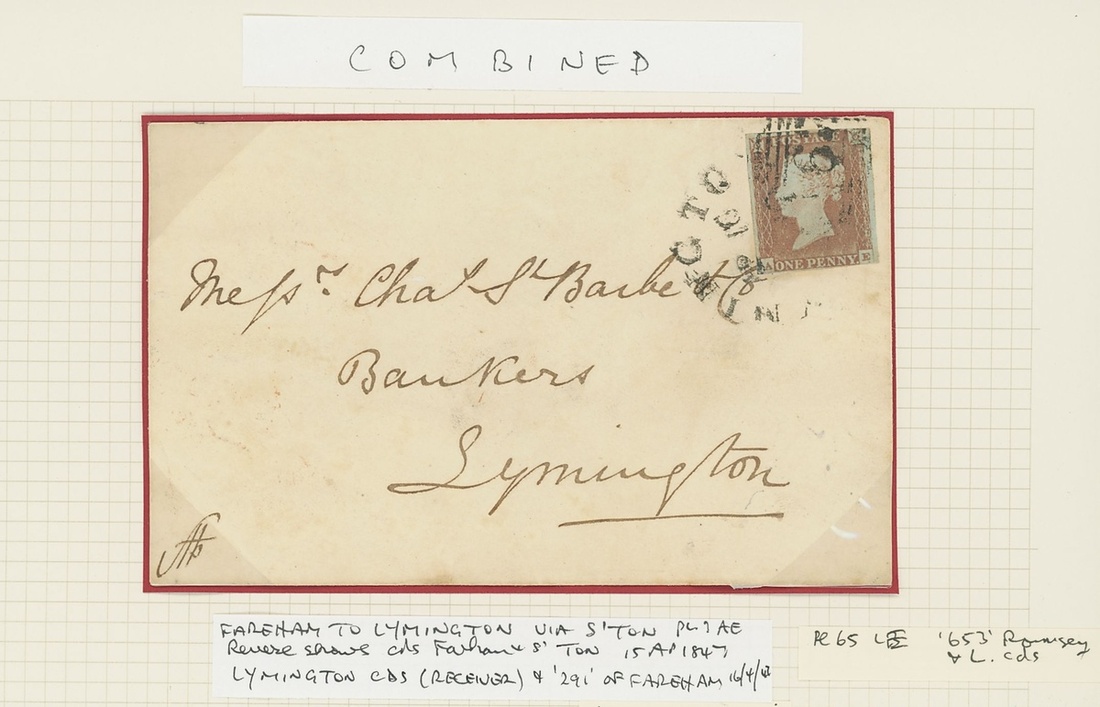 COMBINED
POSTAGE
ONE PENNY
A E
LYMINGTO
Messrs. Chas St Barbe & Co
Bankers
Lymington
FAREHAM TO LYMINGTON VIA S'TON PL ? AE
Reverse shows cds Fareham & S' Ton 15 AP 1847
LYMINGTON CDS (RECEIVER) & '291' OF FAREHAM 16/4/
'653' Romsey
& L. cds